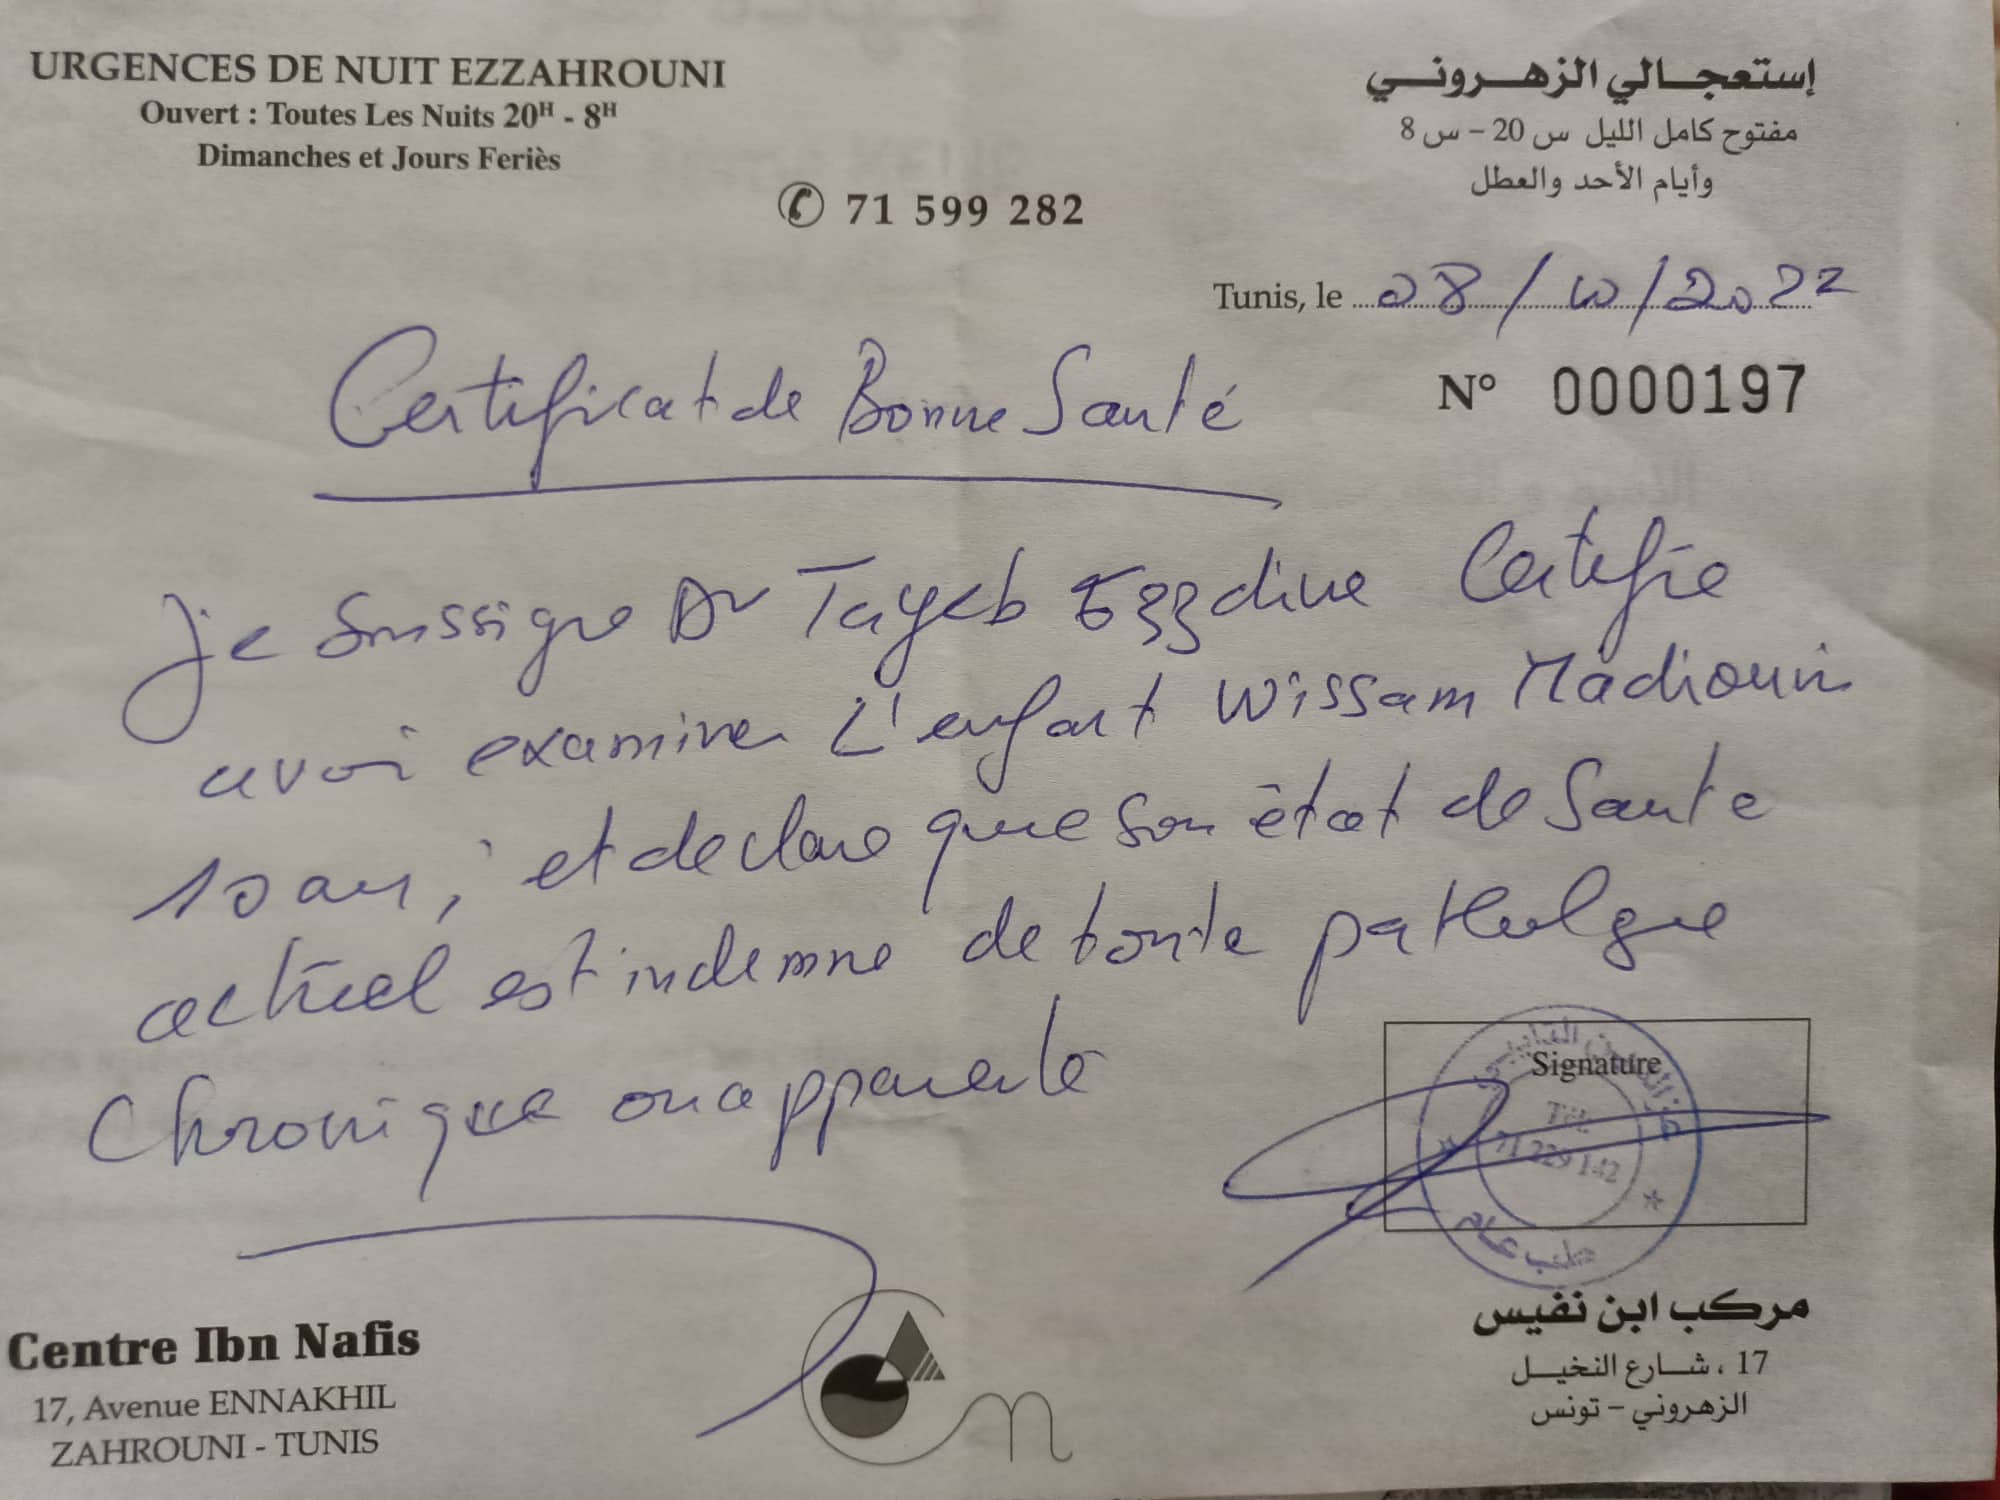 URGENCES DE NUIT EZZAHROUNI
Ouvert : Toutes Les Nuits 20H - 8H
Dimanches et Jours Feriès
إستعجالي الزهروني
مفتوح كامل الليل س 20 – س 8
وأيام الأحد والعطل
✆ 71 599 282
Tunis, le 08/10/2022
N° 0000197
Certificat de Bonne Santé
Je Soussigne Dr Tayeb Ezzdine Certifie
avoir examiner L'enfant Wissam Madiouni
10 ans, et declare que son êtat de Sante
actuel est indemne de toute pathologue
Chronique ou apparente
Signature
Tél.
71 229 142
طب عام
Centre Ibn Nafis
17, Avenue ENNAKHIL
ZAHROUNI - TUNIS
مركب ابن نفيس
17 ، شارع النخيل
الزهروني – تونس